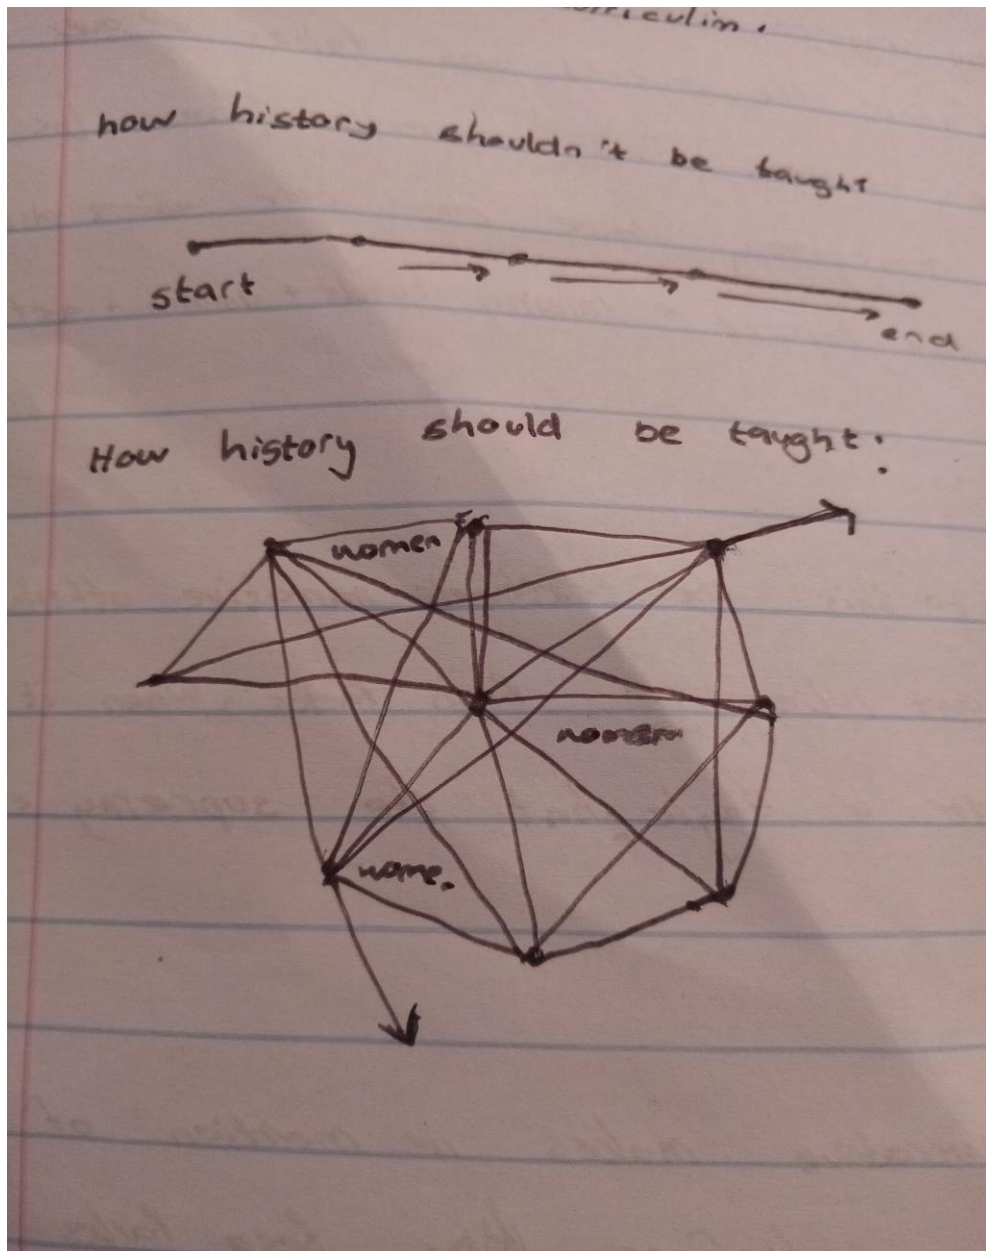 how history shouldn't be taught
start
end
How history should be taught:
women
women
wome.